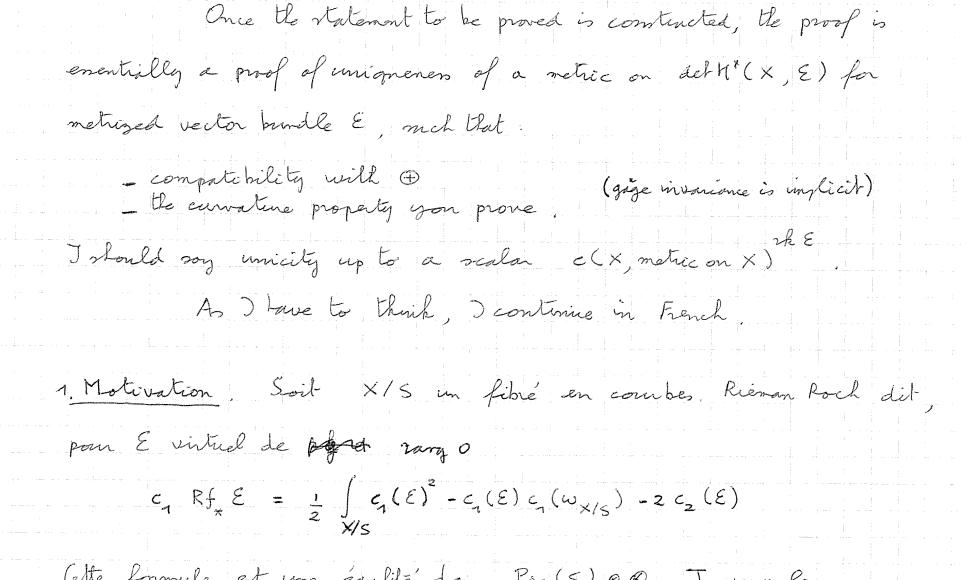 Once the statement to be proved is constructed, the proof is
essentially a proof of uniqueness of a metric on det H*(X, ℰ) for
metrized vector bundle ℰ, such that :
– compatibility with ⊕
(gage invariance is implicit)
– the curvature property you prove.
I should say unicity up to a scalar c(X, metric on X)^{rk ℰ}.
As I have to think, I continue in French.
1. Motivation. Soit X/S un fibré en courbes. Rieman Roch dit,
pour ℰ virtuel de rang 0
c₁ Rf_* ℰ = 1/2 ∫_{X/S} c₁(ℰ)² - c₁(ℰ) c₁(ω_{X/S}) - 2 c₂(ℰ)
Cette formule est une égalité de